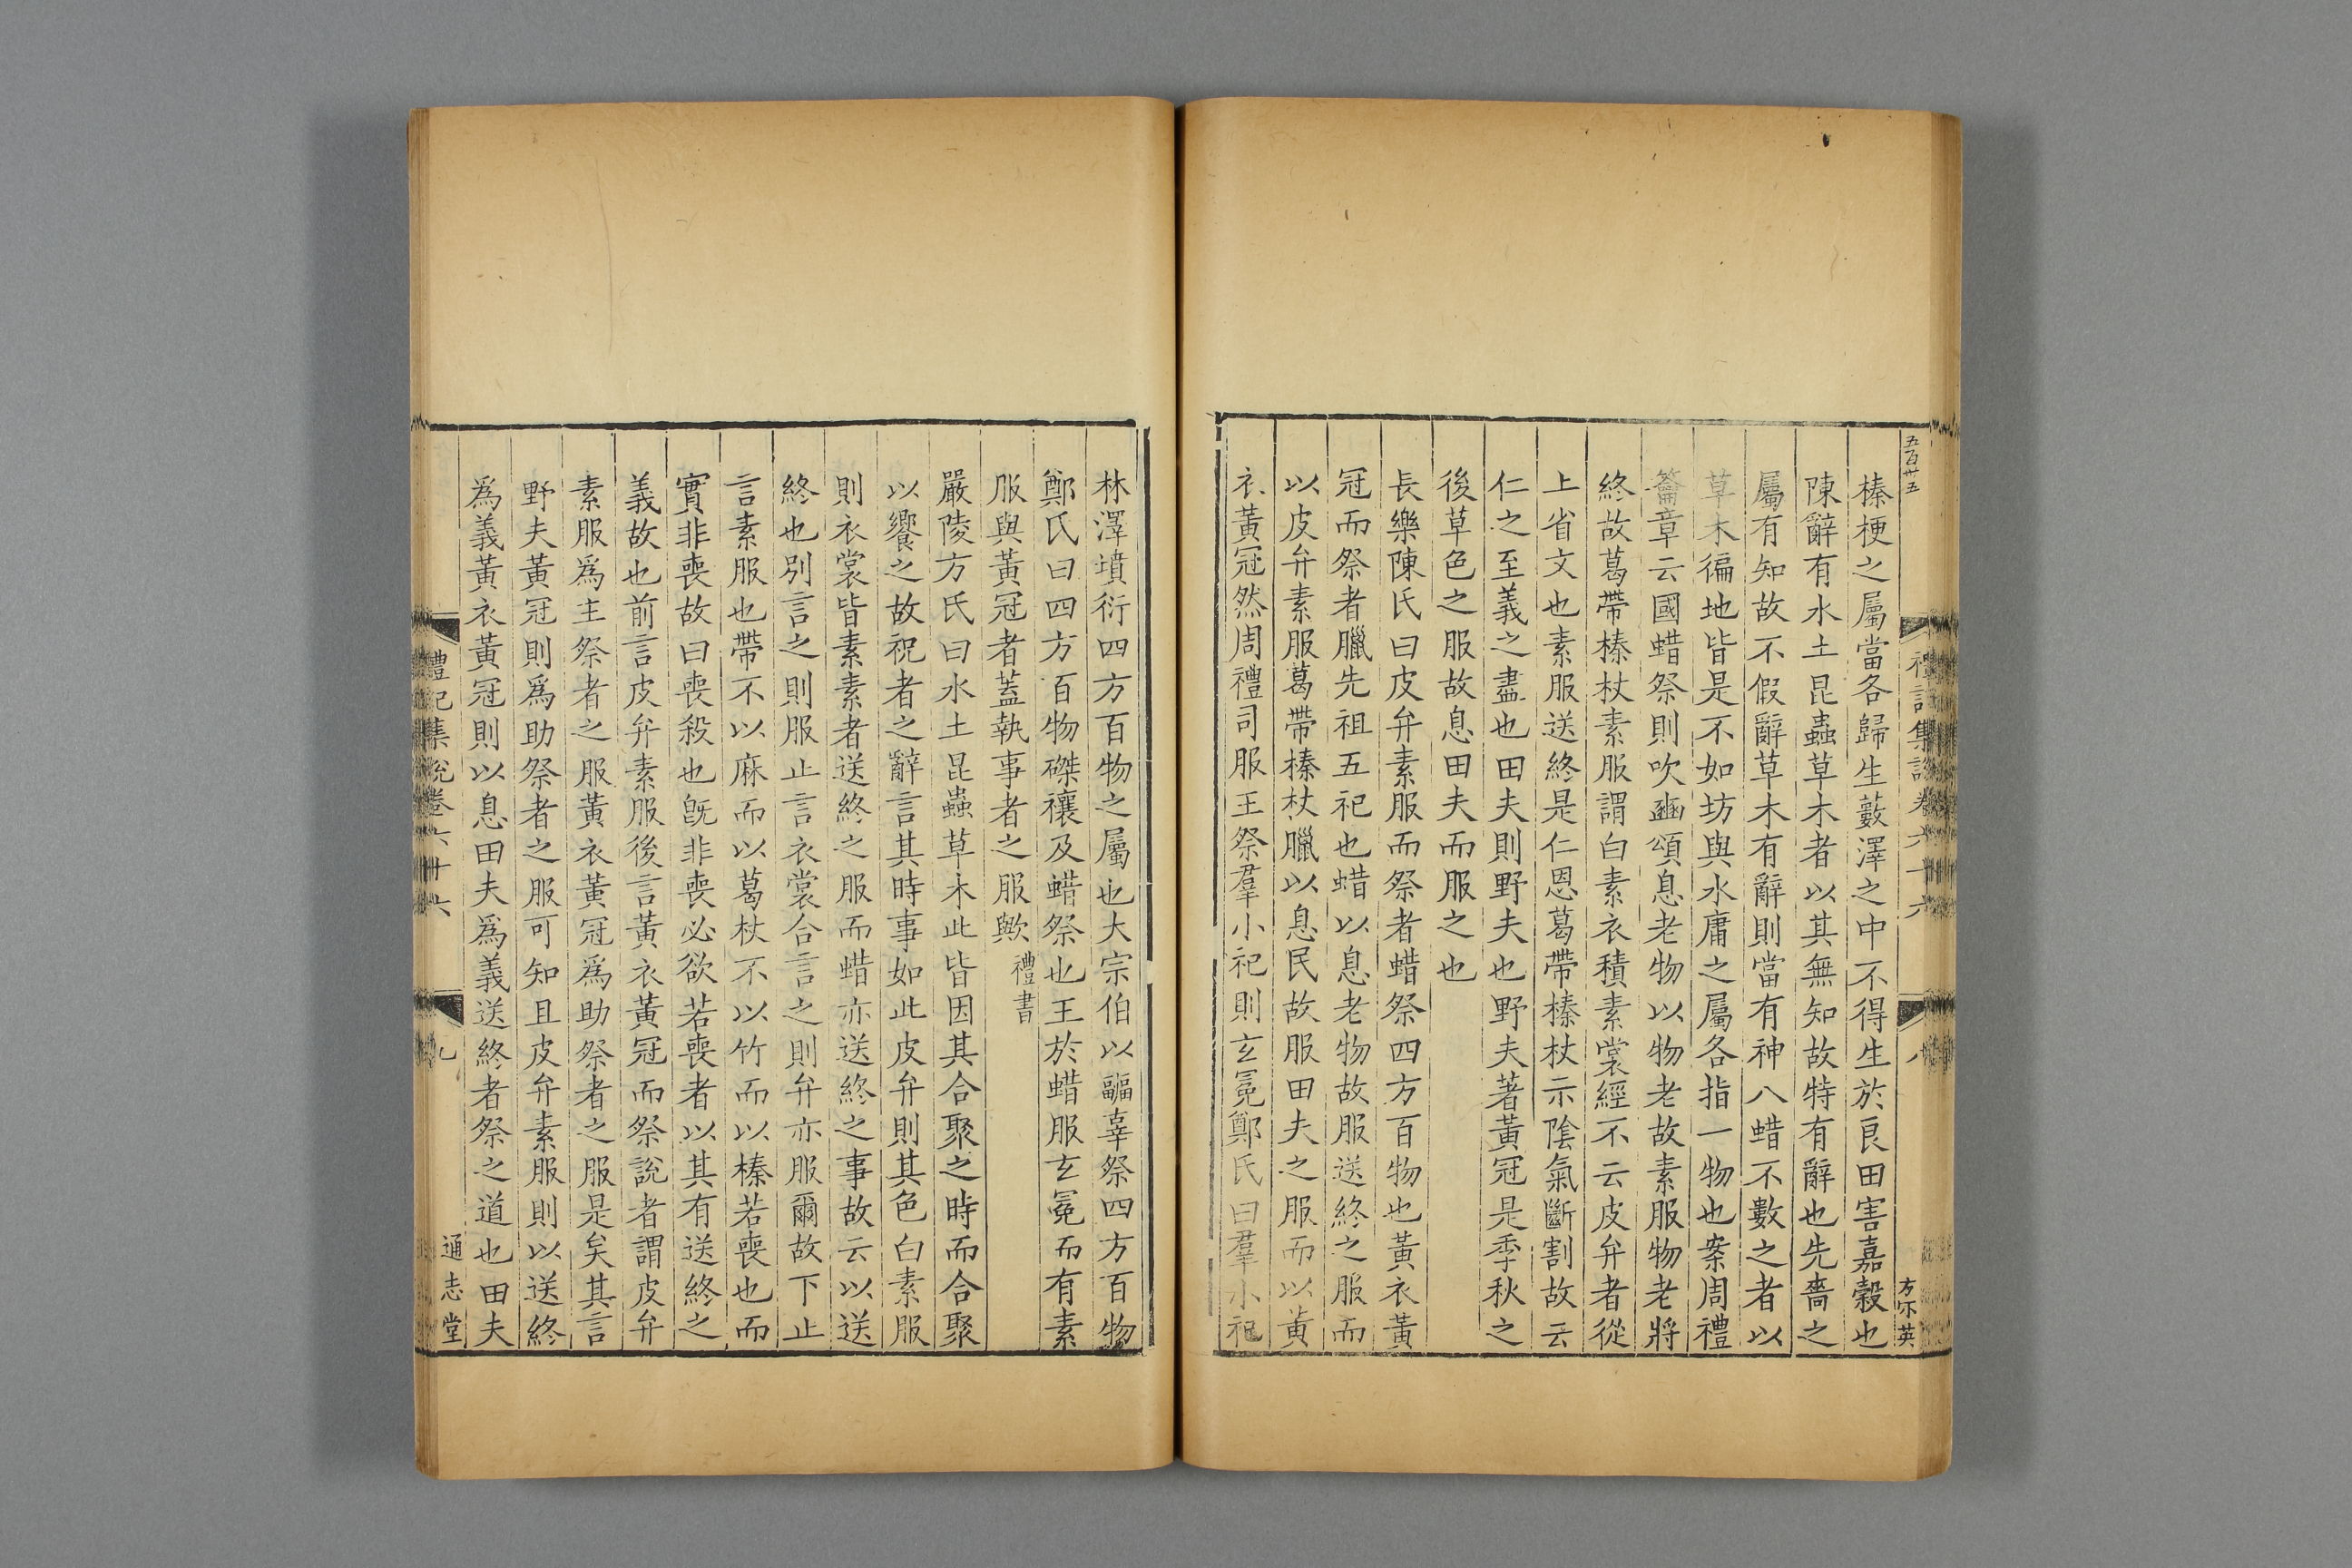 五百卅五
禮記集說卷六十六
八
方尔英
榛梗之屬當各歸生藪澤之中不得生於良田害嘉穀也
陳辭有水土昆蟲草木者以其無知故特有辭也先嗇之
屬有知故不假辭草木有辭則當有神八蜡不數之者以
草木徧地皆是不如坊與水庸之屬各指一物也案周禮
籥章云國蜡祭則吹豳頌息老物以物老故素服物老將
終故葛帶榛杖素服謂白素衣積素裳經不云皮弁者從
上省文也素服送終是仁恩葛帶榛杖示陰氣斷割故云
仁之至義之盡也田夫則野夫也野夫著黃冠是季秋之
後草色之服故息田夫而服之也
長樂陳氏曰皮弁素服而祭者蜡祭四方百物也黃衣黃
冠而祭者臘先祖五祀也蜡以息老物故服送終之服而
以皮弁素服葛帶榛杖臘以息民故服田夫之服而以黃
衣黃冠然周禮司服王祭羣小祀則玄冕鄭氏曰羣小祀
林澤墳衍四方百物之屬也大宗伯以疈辜祭四方百物
鄭氏曰四方百物磔禳及蜡祭也王於蜡服玄冕而有素
服與黃冠者蓋執事者之服歟禮書
嚴陵方氏曰水土昆蟲草木此皆因其合聚之時而合聚
以饗之故祝者之辭言其時事如此皮弁則其色白素服
則衣裳皆素素者送終之服而蜡亦送終之事故云以送
終也別言之則服止言衣裳合言之則弁亦服爾故下止
言素服也帶不以麻而以葛杖不以竹而以榛若喪也而
實非喪故曰喪殺也旣非喪必欲若喪者以其有送終之
義故也前言皮弁素服後言黃衣黃冠而祭說者謂皮弁
素服爲主祭者之服黃衣黃冠爲助祭者之服是矣其言
野夫黃冠則爲助祭者之服可知且皮弁素服則以送終
爲義黃衣黃冠則以息田夫爲義送終者祭之道也田夫
禮記集說卷六十六
九
通志堂